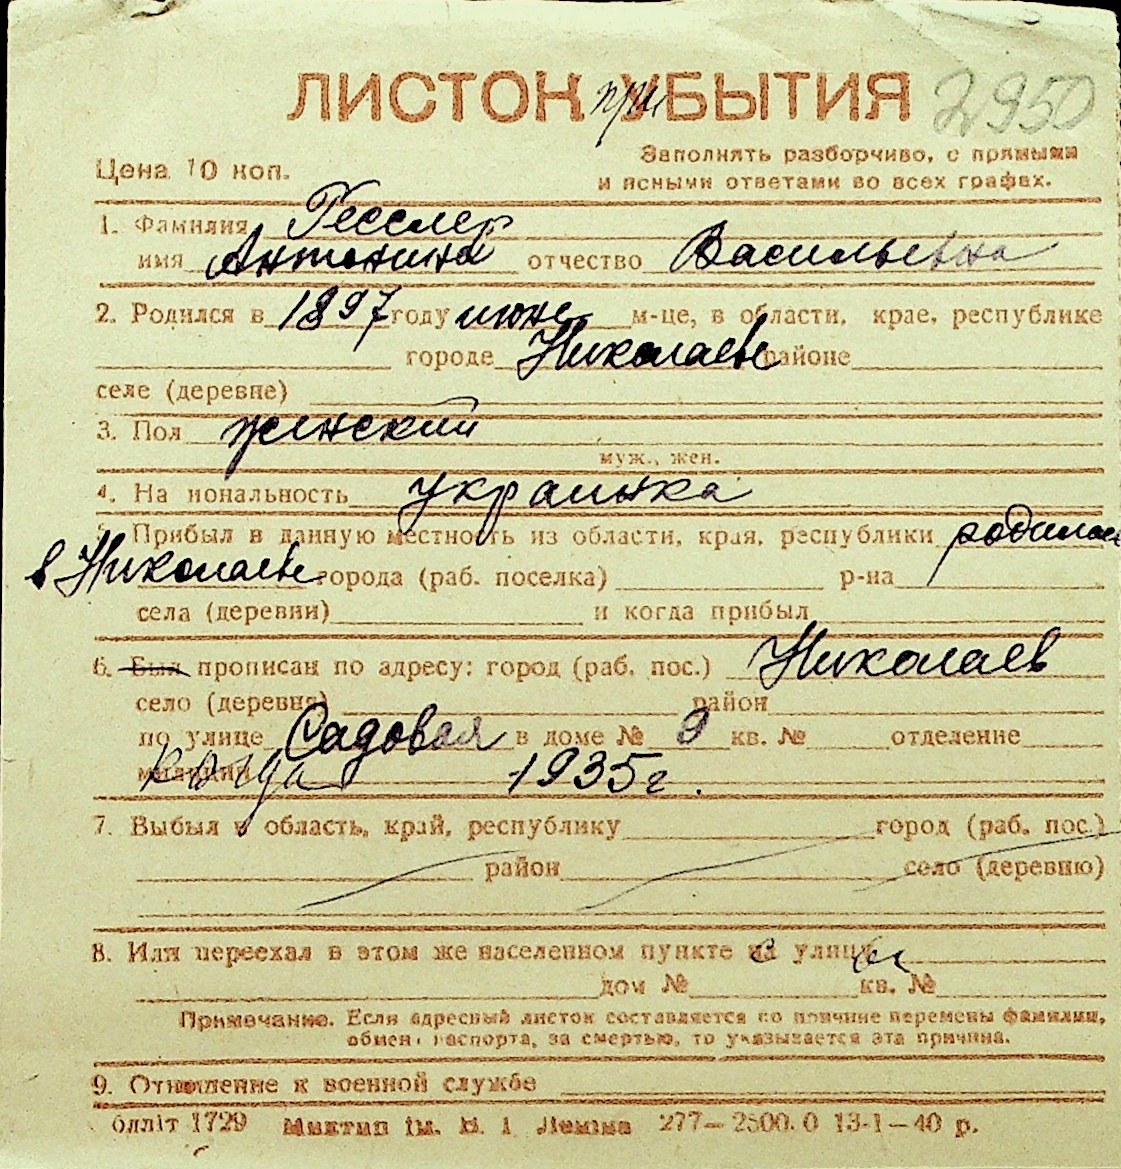 ЛИСТОК при УБЫТИЯ 2950
Цена 10 коп.
Заполнять разборчиво, с прямыми
и ясными ответами во всех графах.
1. Фамилия Гесслер
имя Антонина отчество Васильевна
2. Родился в 1897 году июне м-це, в области, крае, республике
городе Николаеве районе
селе (деревне)
3. Пол женский
муж., жен.
4. На иональность украинка
5. Прибыл в данную местность из области, края, республики родилась
в Николаеве города (раб. поселка) р-на
села (деревни) и когда прибыл
6. Был прописан по адресу: город (раб. пос.) Николаев
село (деревня) район
по улице Садовая в доме № 9 кв. № отделение
милиции когда 1935 г.
7. Выбыл в область, край, республику город (раб. пос.)
район село (деревню)
8. Или переехал в этом же населенном пункте с улицы
дом № кв. №
Примечание. Если адресный листок составляется по причине перемены фамилии,
обмен паспорта, за смертью, то указывается эта причина.
9. Отношение к военной службе
блліт 1729 Миктип ім. В. І. Леніна 277—2500.0 13-1—40 р.